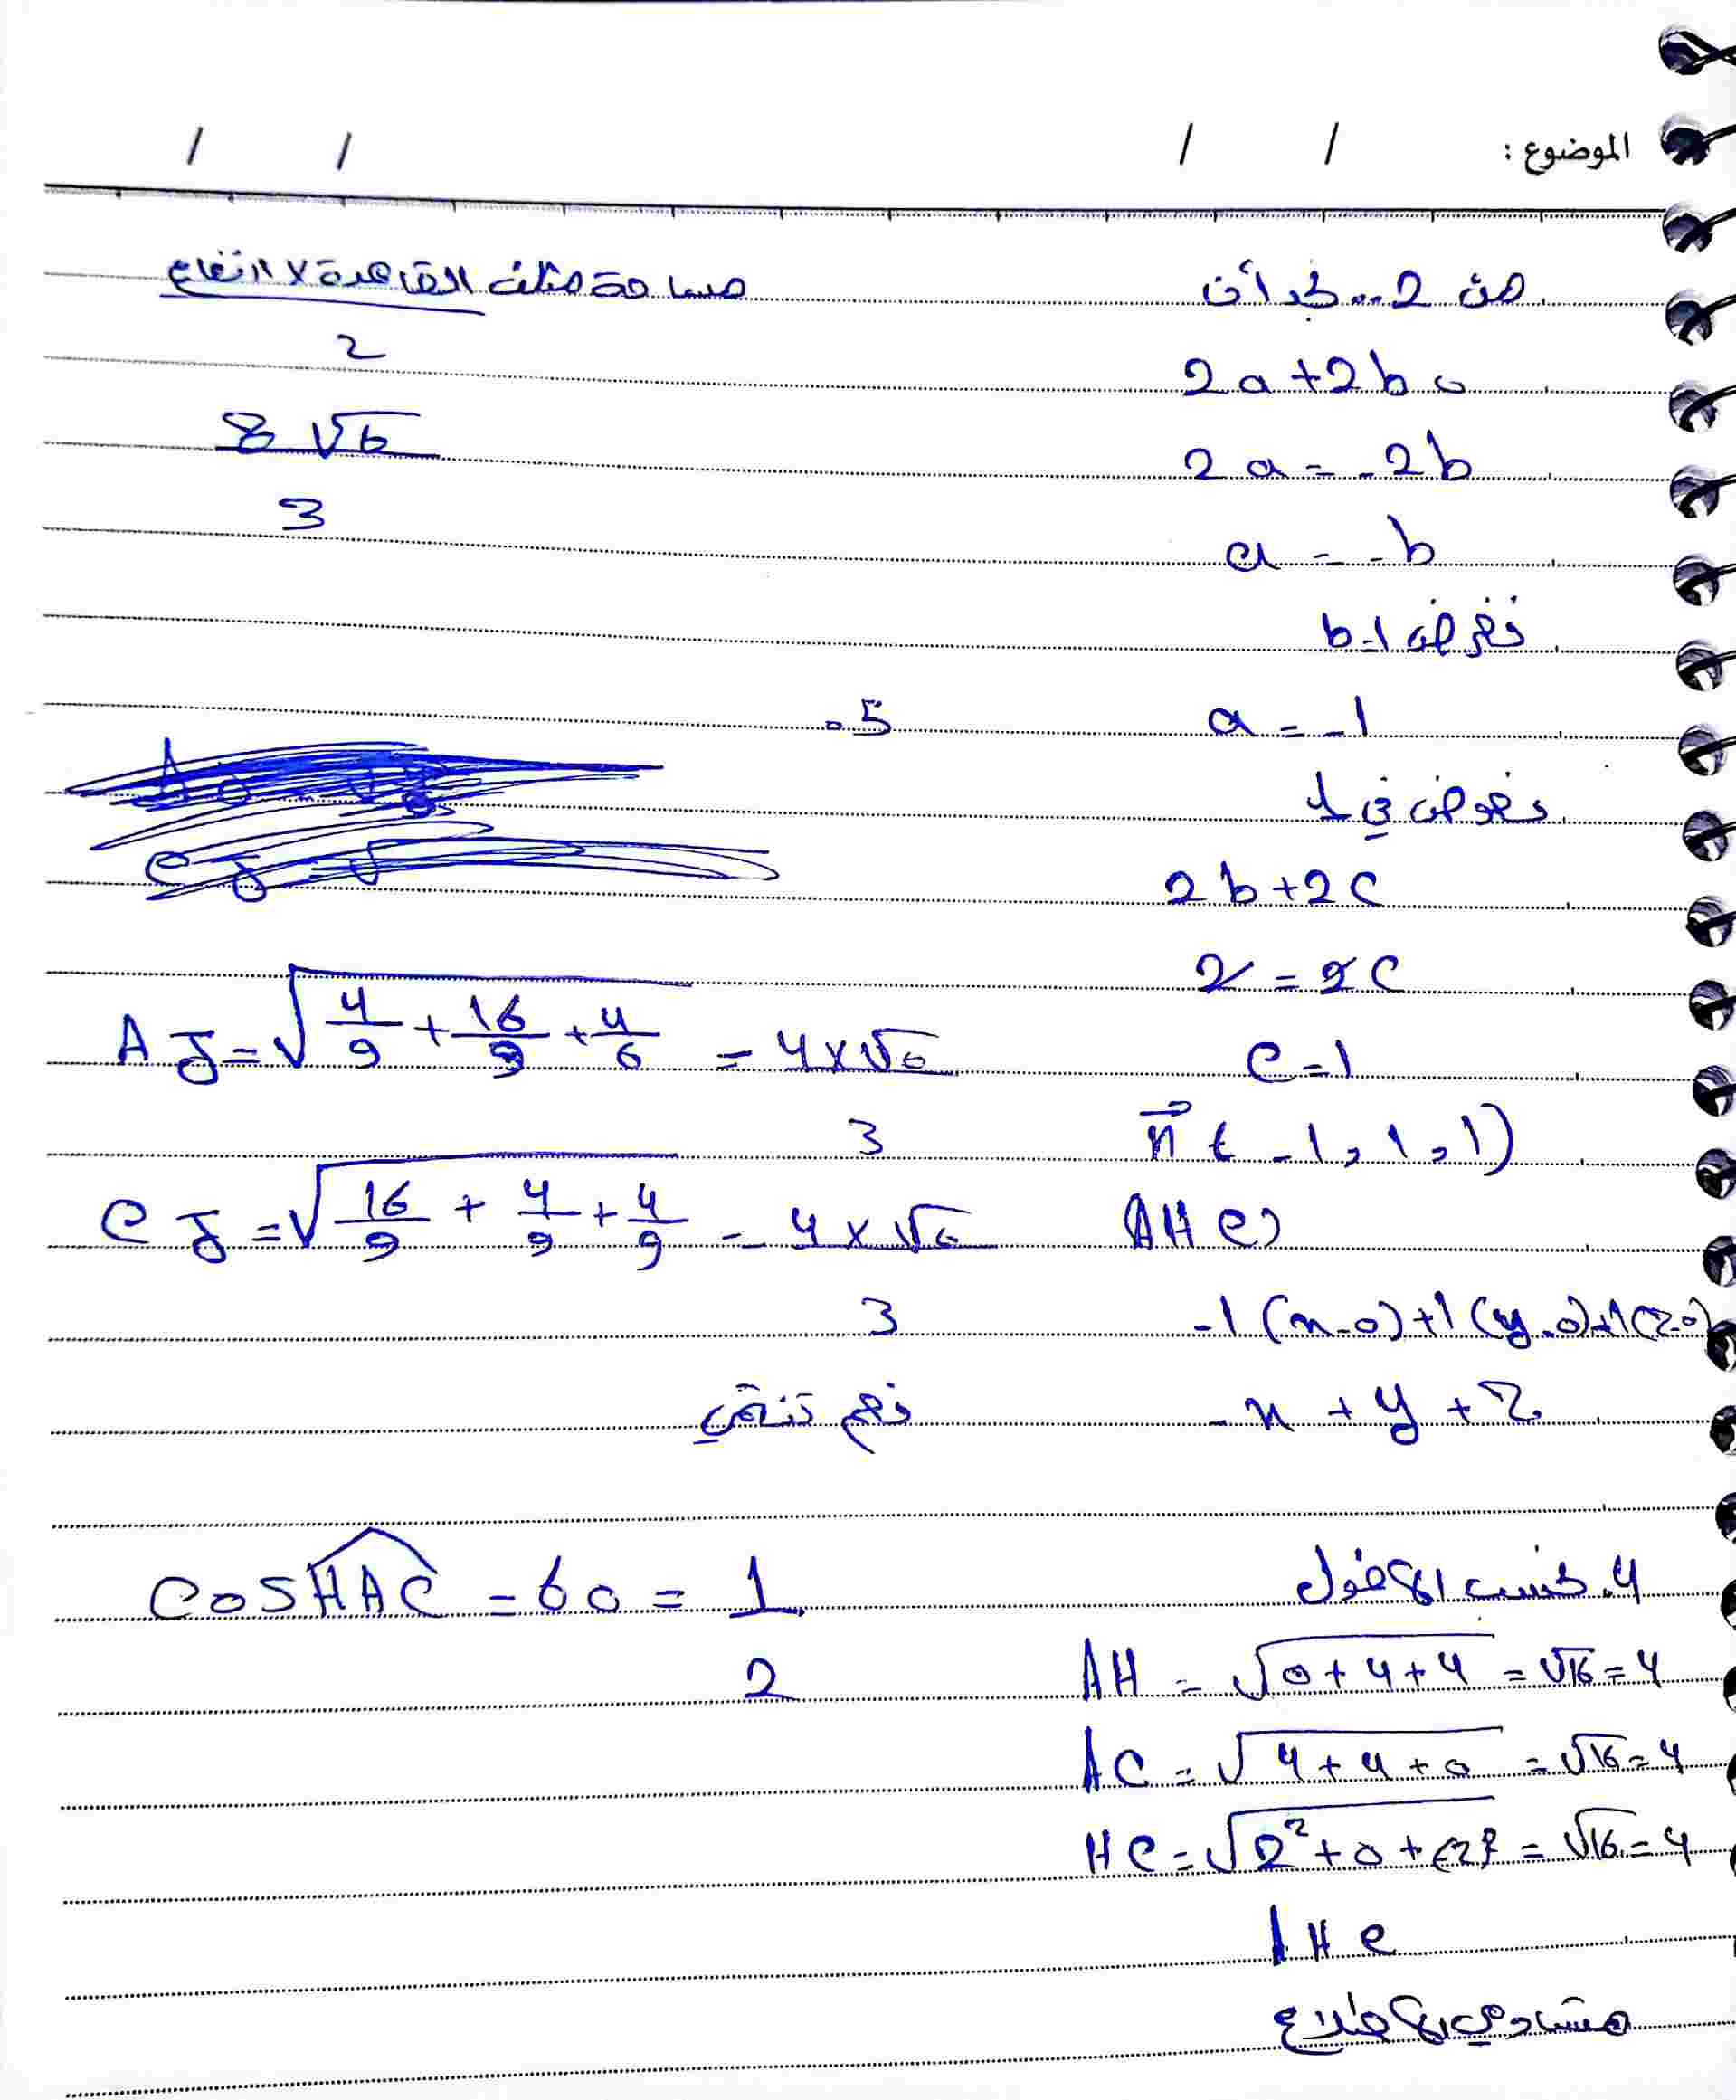 الموضوع : / / / /
من 2.. نجد أن
2a+2b 0
2a = -2b
a = -b
نفرض b=1
a = -1
نعوض في 1
2b+2c
2 = 2c
c=1
n⃗ (-1, 1, 1)
AHC)
-1(x-0)+1(y-0)+1(z-0)
-x + y + z
4. نحسب الأطول
AH = √0+4+4 = √16 = 4
AC = √4+4+0 = √16 = 4
HC = √2²+0+(-2)² = √16 = 4
AHC
متساوي الأضلاع
مساحة مثلث القاعدة × ارتفاع
2
8√6
3
.5
AJ = √4/9 + 16/9 + 4/6 = 4×√6
3
CJ = √16/9 + 4/9 + 4/9 = 4×√6
3
نعم تنتمي
COSHAC = 60 = 1
2